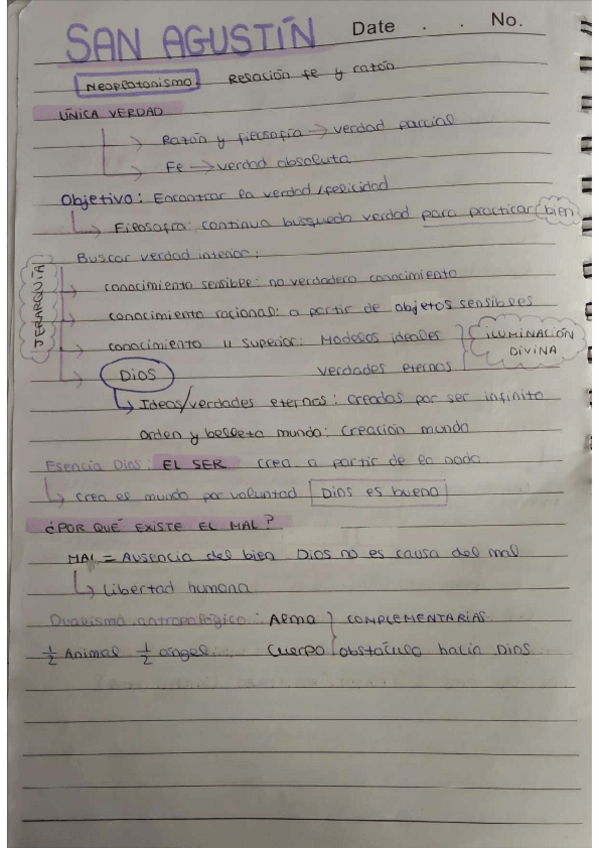 SAN AGUSTÍN Date . . No.
Neoplatonismo Relación fe y razón
ÚNICA VERDAD
→ Razón y filosofía → verdad parcial
→ Fe → verdad absoluta
Objetivo: Encontrar la verdad/felicidad
→ Filosofía: continua búsqueda verdad para practicar bien
Buscar verdad interior:
JERARQUÍA
→ conocimiento sensible: no verdadero conocimiento
→ conocimiento racional: a partir de objetos sensibles
→ conocimiento " superior: Modelos ideales
verdades eternas
ILUMINACIÓN DIVINA
→ DIOS
→ Ideas/verdades eternas: creadas por ser infinito
Orden y belleza mundo: creación mundo
Esencia Dios: EL SER crea a partir de la nada
→ Crea el mundo por voluntad Dios es bueno
¿POR QUÉ EXISTE EL MAL?
MAL = Ausencia del bien Dios no es causa del mal
→ Libertad humana
Dualismo antropológico: Alma } COMPLEMENTARIAS
½ Animal ½ angel. Cuerpo } obstáculo hacia Dios